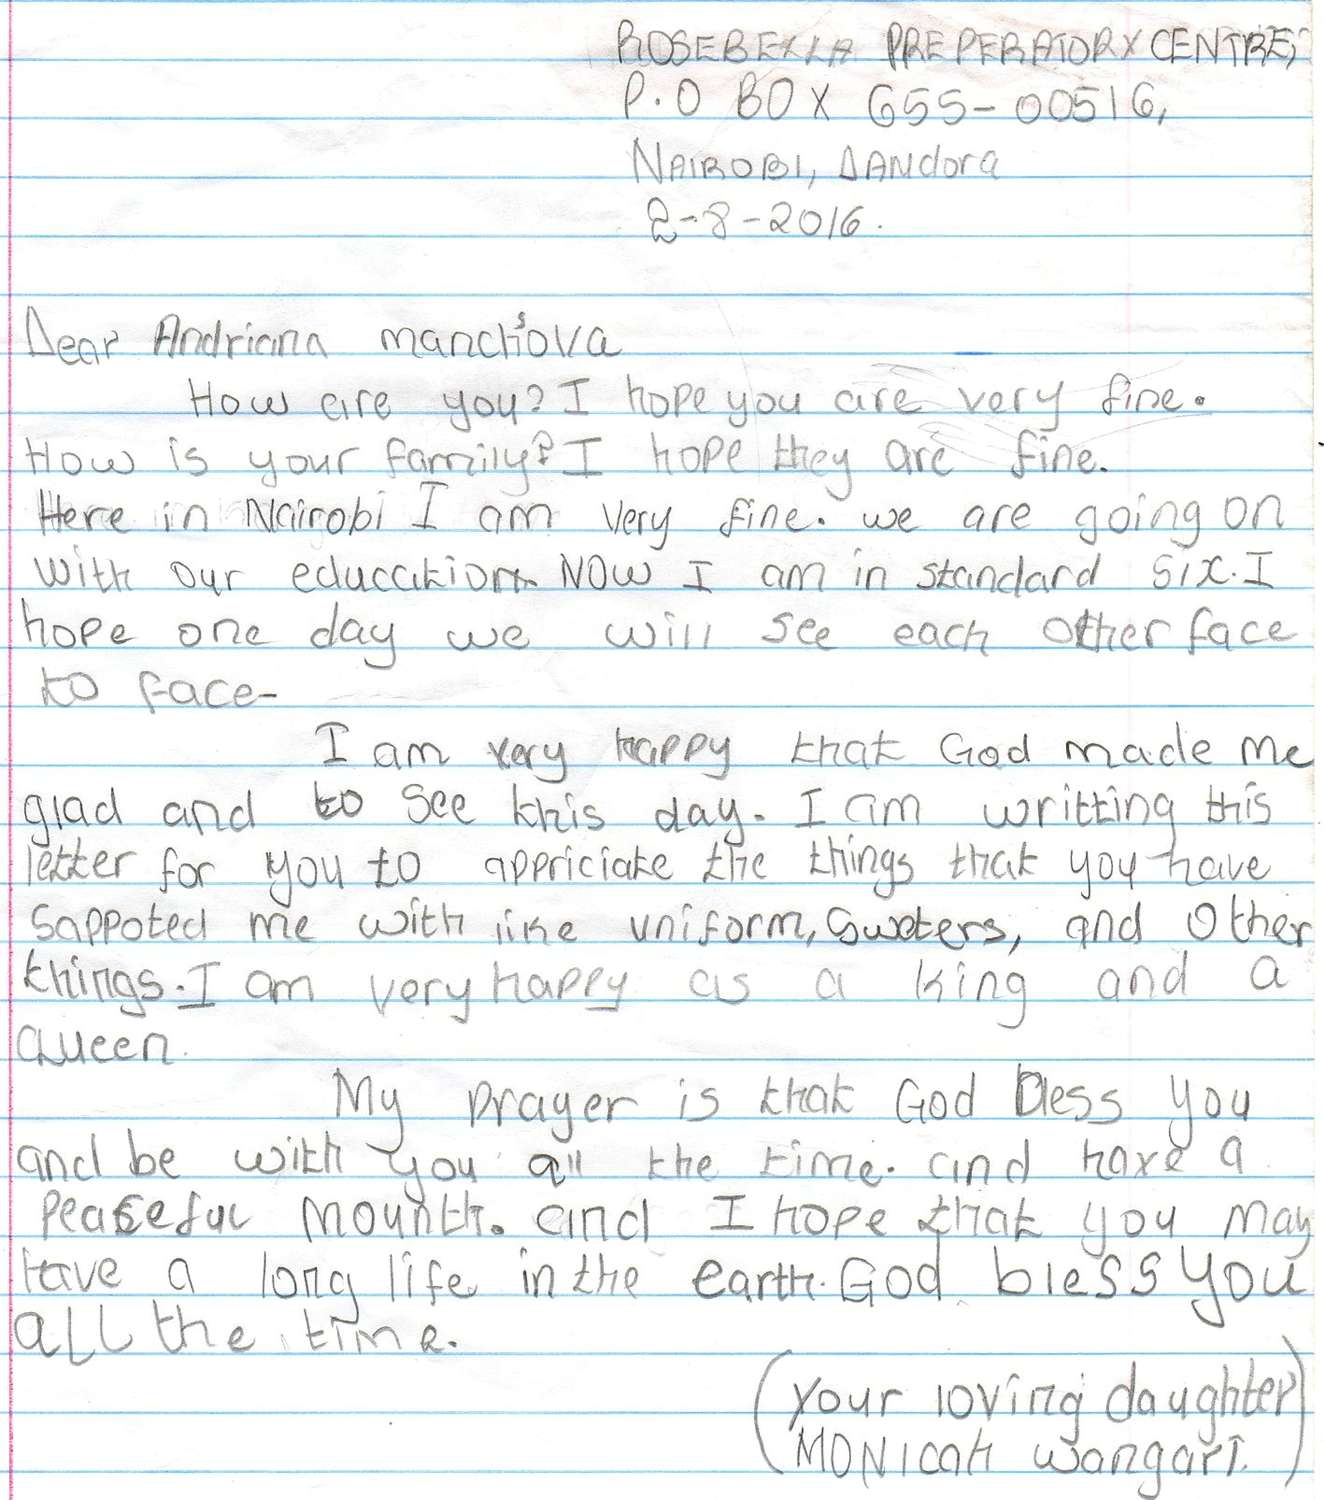 ROSEBELLA PREPERATORY CENTRE,
P.O BOX 655-00516,
NAIROBI, DANdora
2-8-2016.
Dear Andriana manchsova
How are you? I hope you are very fine.
How is your family? I hope they are fine.
Here in Nairobi I am very fine. we are going on
with our education. NOW I am in standard six. I
hope one day we will see each other face
to face-
I am very happy that God made me
glad and to see this day. I am writting this
letter for you to appriciate the things that you have
sappoted me with like uniform, Sweters, and other
things. I am very happy as a king and a
queen.
My prayer is that God bless you
and be with you all the time. and have a
peaceful mounth. and I hope that you may
have a long life in the earth. God bless you
all the time.
(your loving daughter)
MONICAH wangari.